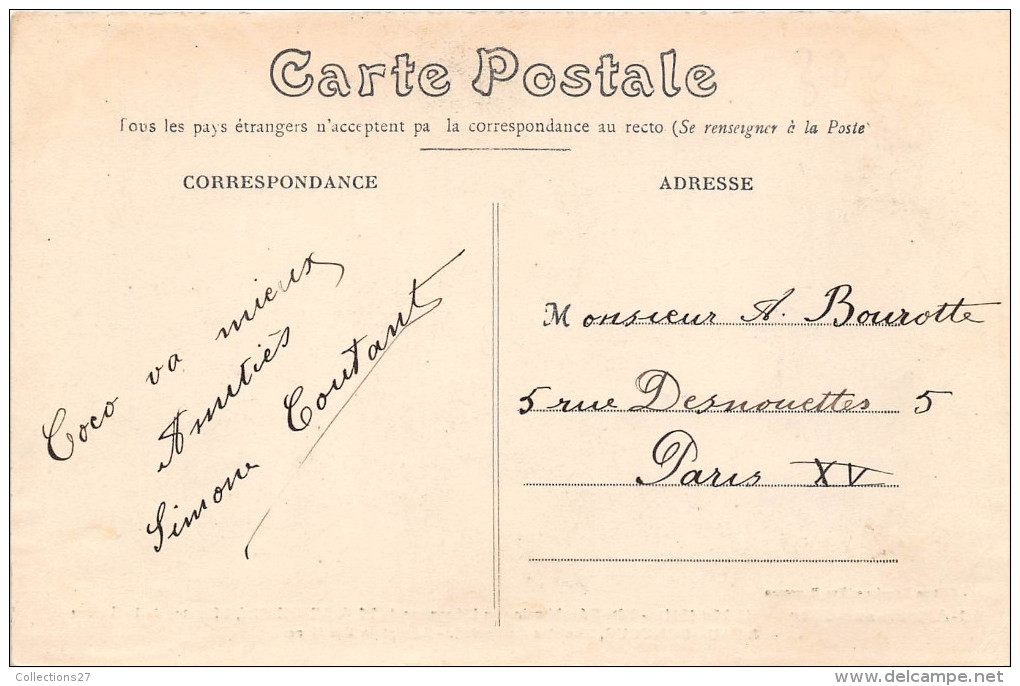 Carte Postale
Tous les pays étrangers n'acceptent pa la correspondance au recto (Se renseigner à la Poste)
CORRESPONDANCE
ADRESSE
Coco va mieux
Amitiés
Simone Coutant
Monsieur A. Bourotte
5 rue Desnouettes 5
Paris XV
Collections27
www.delcampe.net